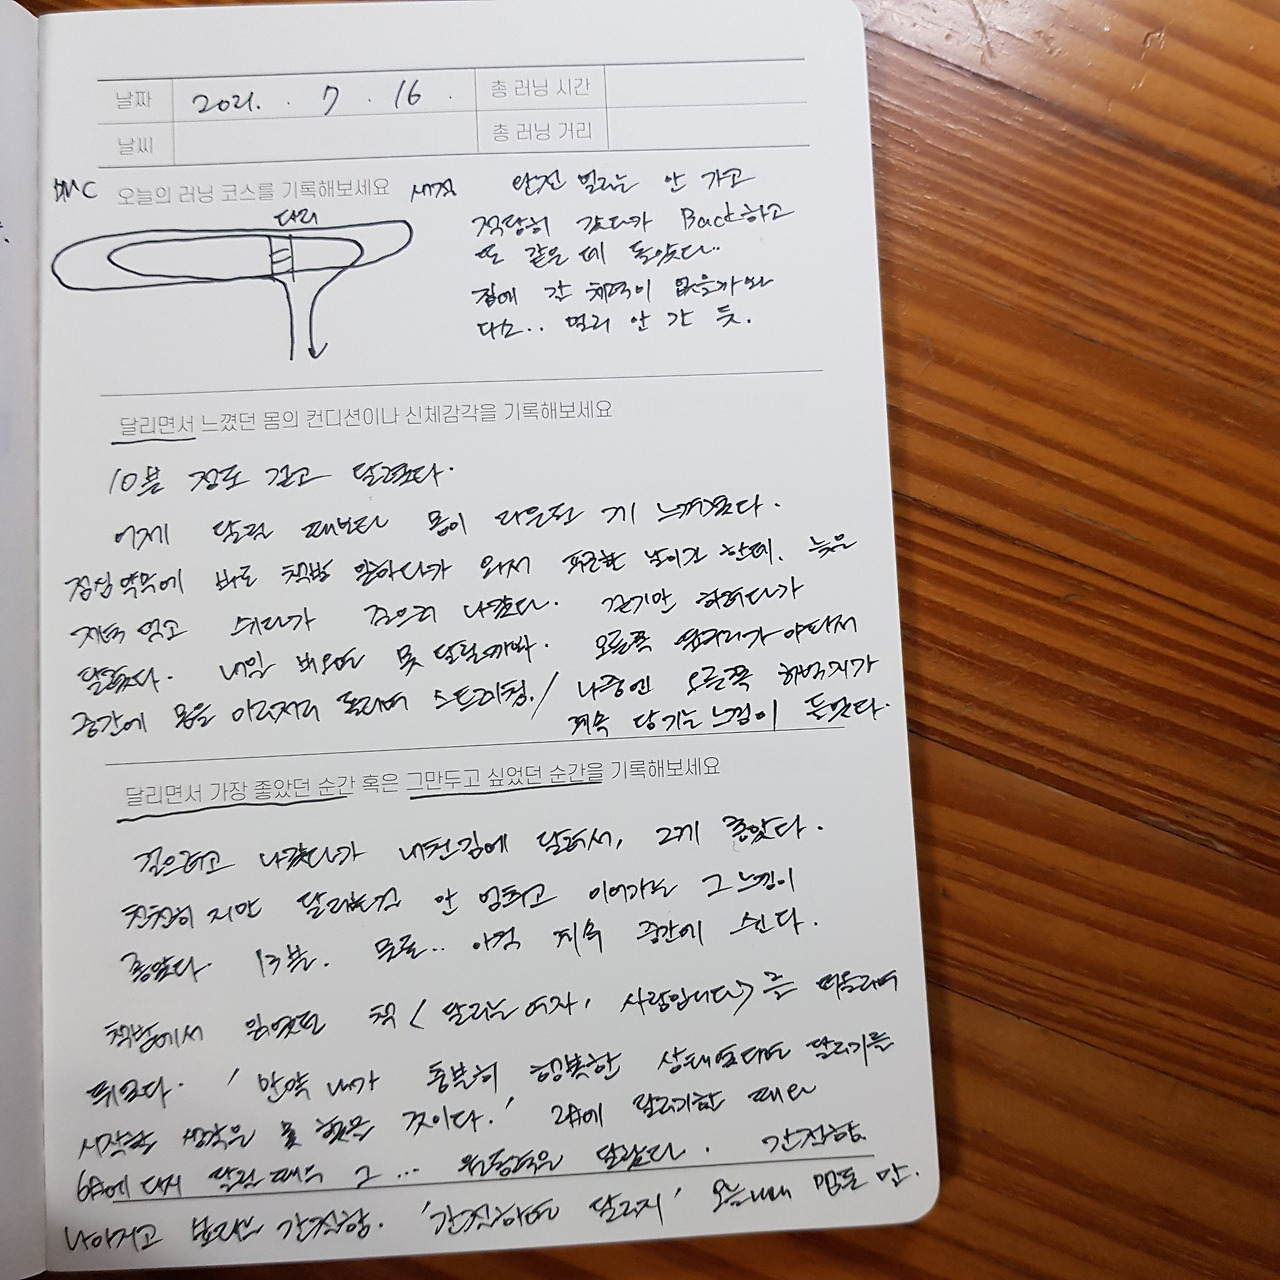 날짜 2021. 7. 16. 총 러닝 시간
날씨 총 러닝 거리
오늘의 러닝 코스를 기록해보세요
다리
완전 멀리는 안 가고
적당히 갔다가 Back하고
또 같은 데 돌았다..
집에 갈 체력이 없을까봐
다소.. 멀리 안 간 듯.
달리면서 느꼈던 몸의 컨디션이나 신체감각을 기록해보세요
10분 정도 걷고 달렸다.
어제 달릴 때보다 몸이 다운된 게 느껴졌다.
점심 약속에 바로 책방 일하다가 와서 피곤한 날이긴 한데. 늦은
저녁 먹고 쉬다가 걸으러 나갔다. 걷기만 하려다가
달렸다. 내일 비오면 못 달릴까봐. 오른쪽 옆구리가 아파서
중간에 몸을 이리저리 돌리며 스트레칭. / 나중엔 오른쪽 허벅지가
계속 당기는 느낌이 들었다.
달리면서 가장 좋았던 순간 혹은 그만두고 싶었던 순간을 기록해보세요
걸으려고 나갔다가 내친김에 달려서, 그게 좋았다.
천천히지만 달리는걸 안 멈추고 이어가는 그 느낌이
좋았다. 13분. 물론.. 아직 계속 중간에 쉰다.
책방에서 읽었던 책 <달리는 여자, 사람입니다>를 떠올리며
뛰었다. '만약 내가 충분히 행복한 상태였다면 달리기를
시작할 생각은 못 했을 것이다.' 2월에 달리기할 때와
6월에 다시 달릴 때의 그 ... 원동력은 달랐다. 간절함.
나아지고 보자는 간절함. '간절하면 달리지' 오늘내내 맴돈 말.